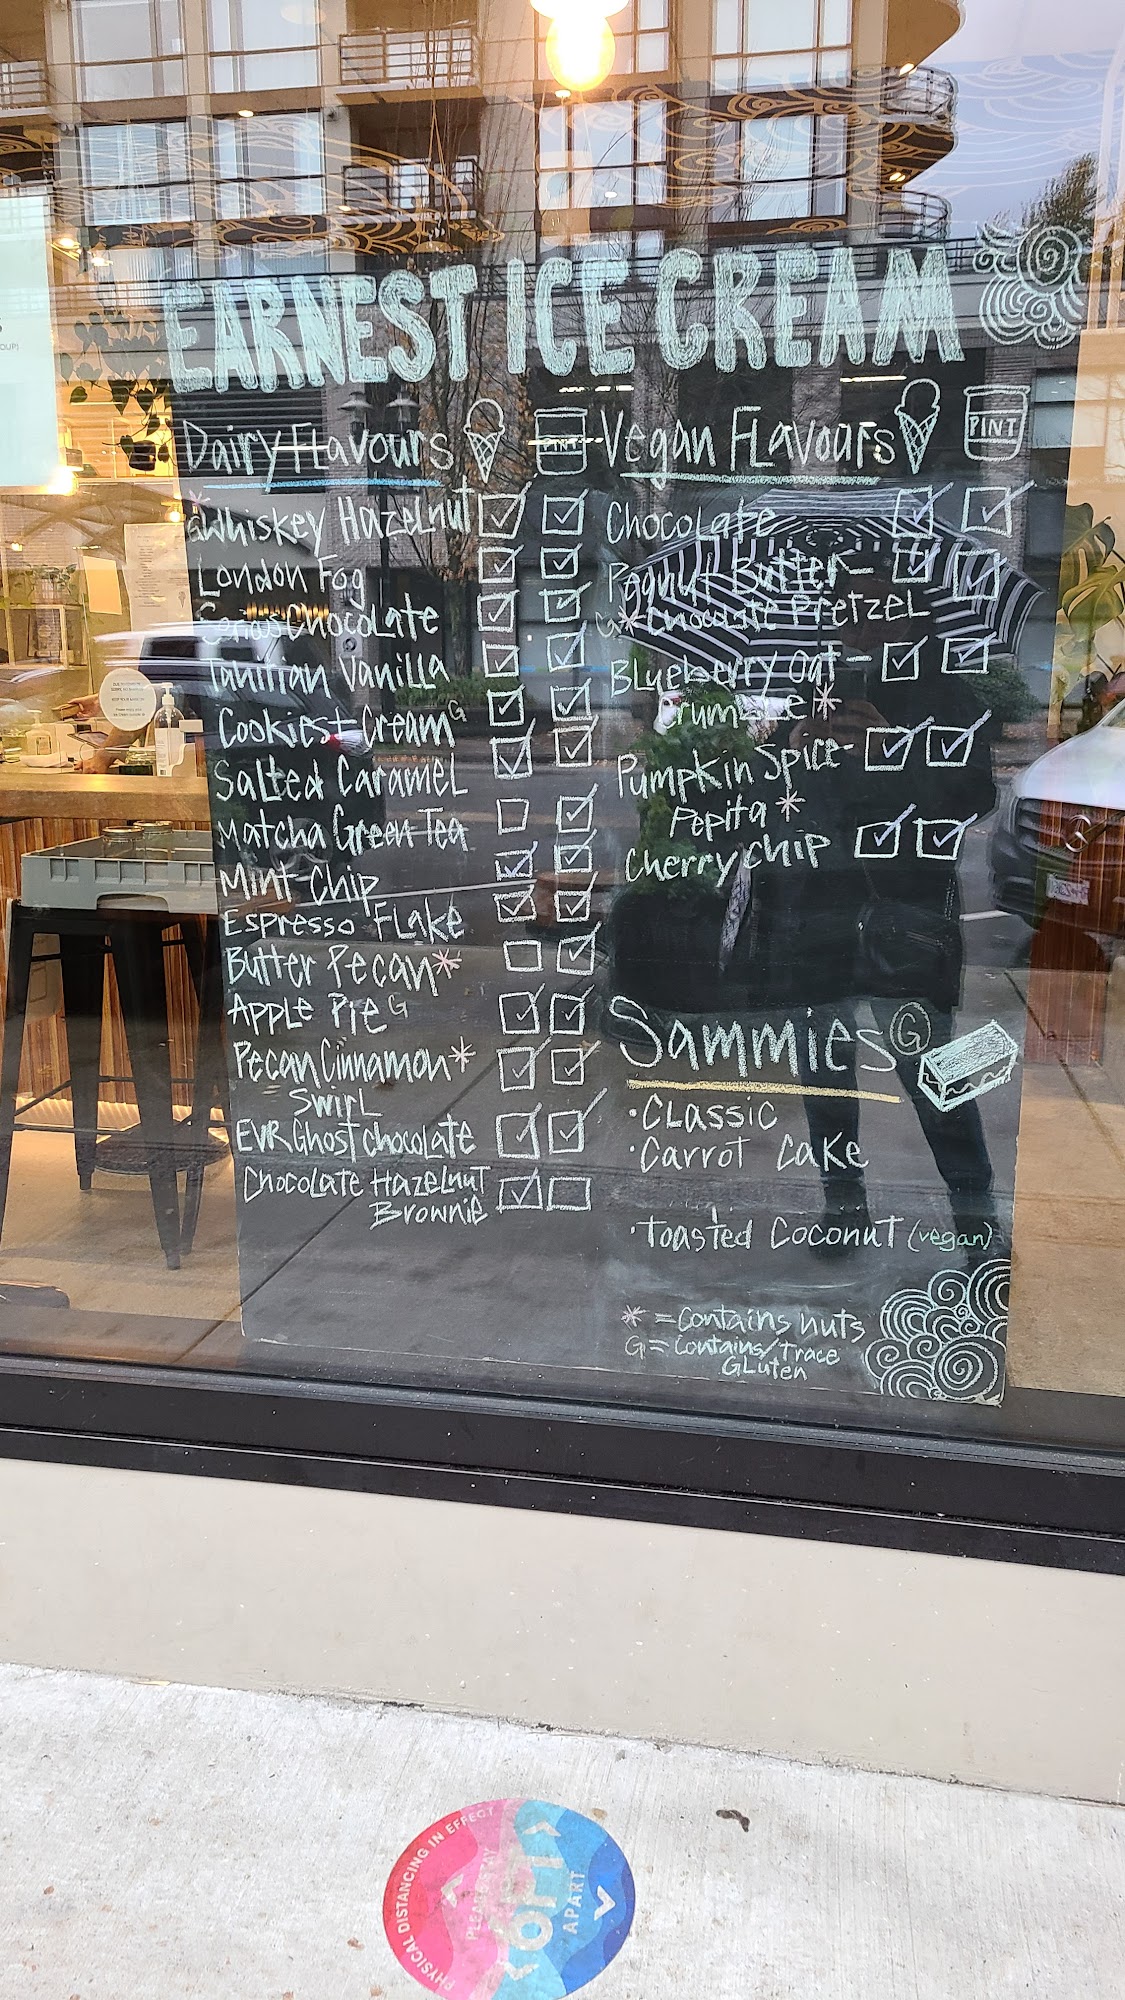 EARNEST ICE CREAM
Dairy Flavours
PINT
* Whiskey Hazelnut
London Fog
Serious Chocolate
Tahitian Vanilla
Cookies + Cream G
Salted Caramel
Matcha Green Tea
Mint Chip
Espresso Flake
Butter Pecan*
Apple Pie G
Pecan Cinnamon*
Swirl
EVR Ghost chocolate
Chocolate Hazelnut
Brownie
Vegan Flavours
PINT
Chocolate
Peanut Butter-
G* Chocolate Pretzel
Blueberry Oat-
Crumble*
Pumpkin Spice
Pepita*
Cherry chip
Sammies G
·Classic
·Carrot Cake
·Toasted Coconut (vegan)
* = Contains nuts
G = Contains/Trace
Gluten
PHYSICAL DISTANCING IN EFFECT
PLEASE STAY
6FT
APART